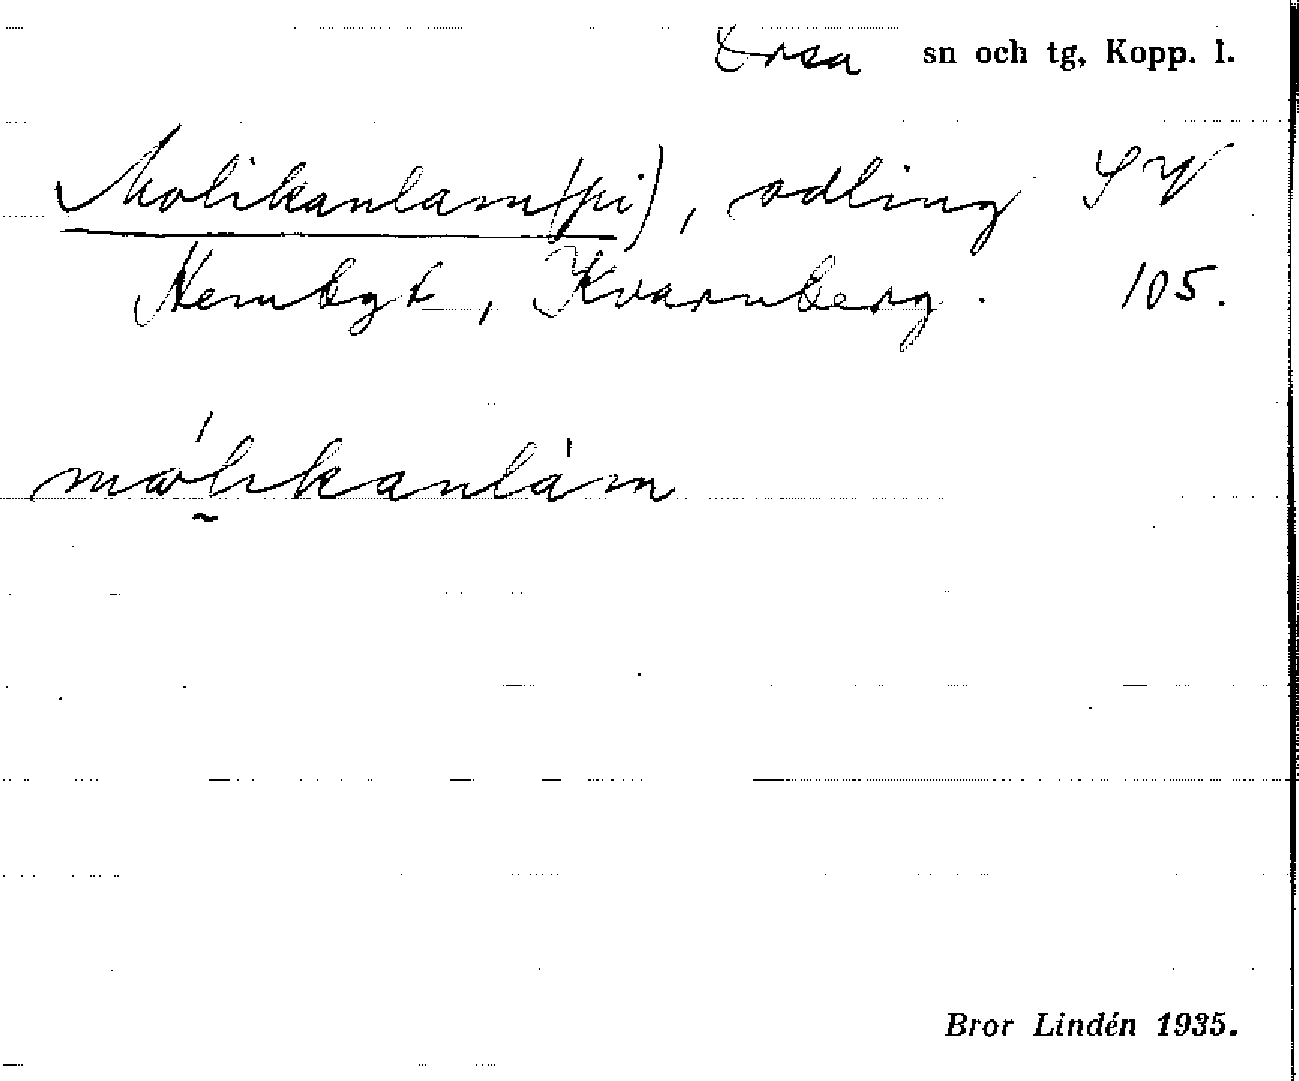 Orsa sn och tg, Kopp. l.
Molikanlam(pi), odling SV
Hembygt, Kvarnberg. 105.
mólikanlám
Bror Lindén 1935.